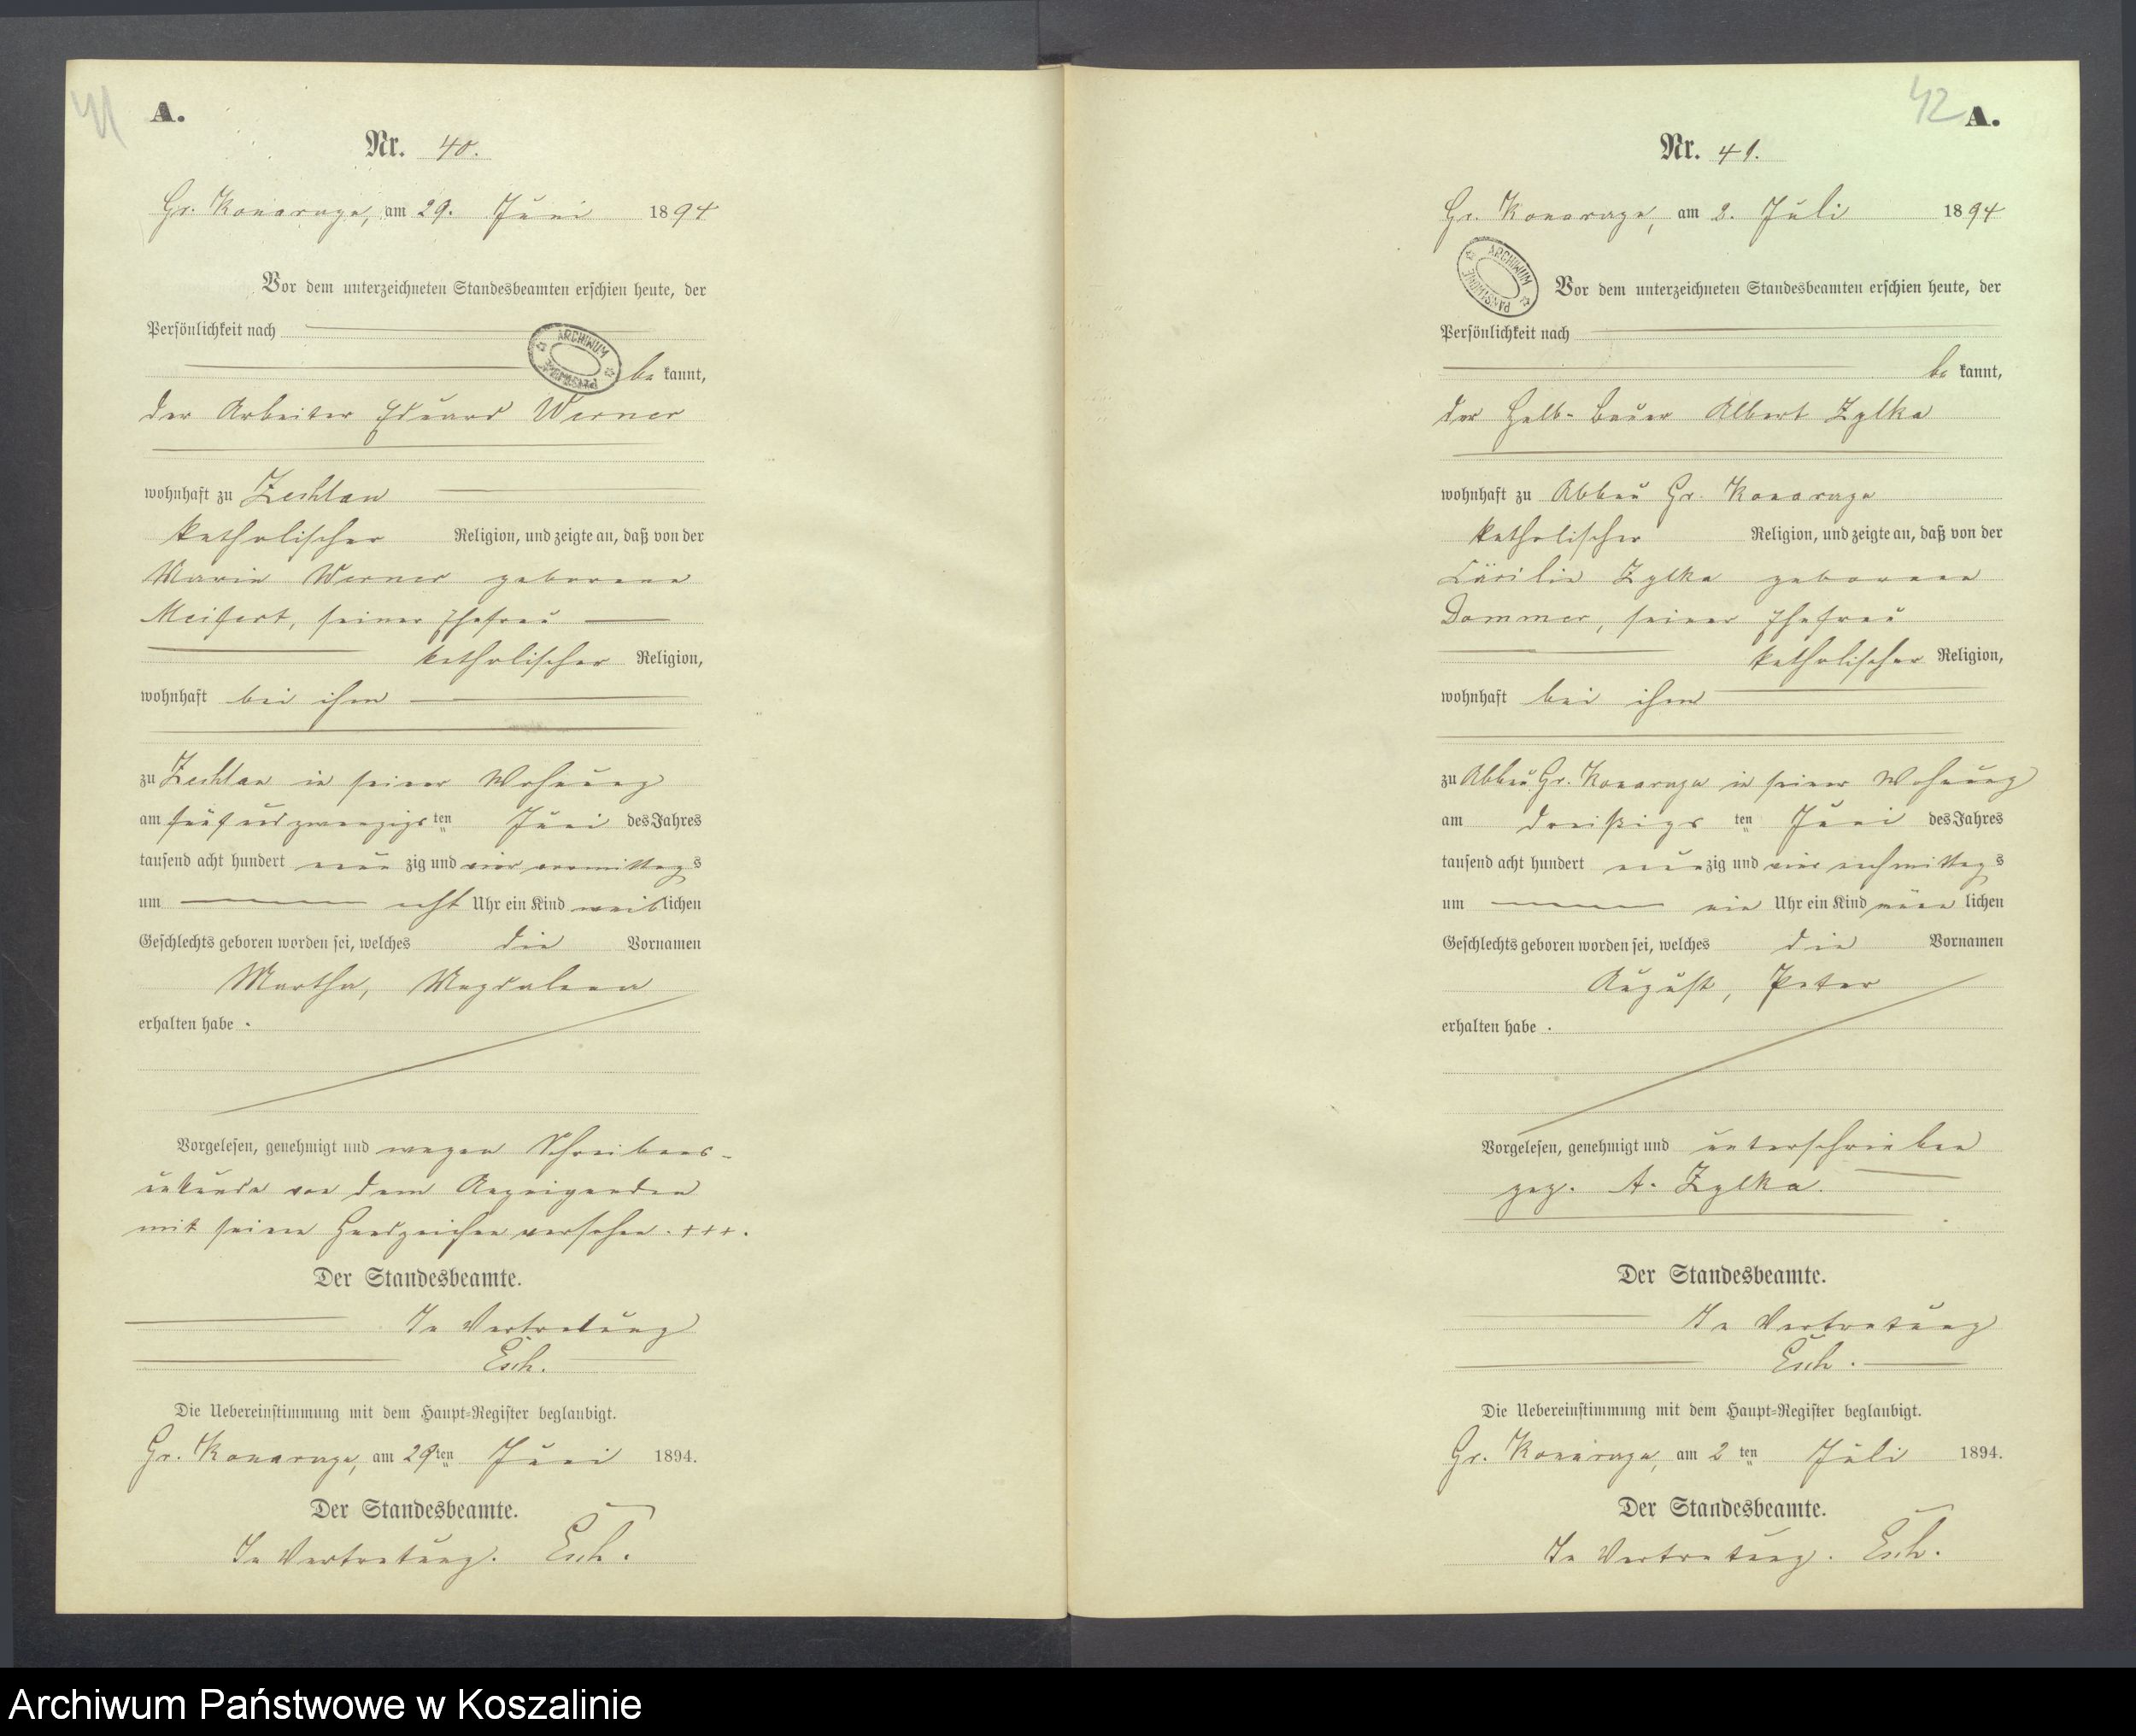 41
A.
Nr. 40.
Gr. Konarzyn, am 29. Juni 1894
Vor dem unterzeichneten Standesbeamten erschien heute, der
Persönlichkeit nach
ARCHIWUM
be kannt,
der Arbeiter Eduard Werner
wohnhaft zu Zechlau
katholischer Religion, und zeigte an, daß von der
Marie Werner geborene
Meifert, seiner Ehefrau
katholischer Religion,
wohnhaft bei ihm
zu Zechlau in seiner Wohnung
am fünfundzwanzigs ten Juni des Jahres
tausend acht hundert neun zig und vier vormittag s
um acht Uhr ein Kind weib lichen
Geschlechts geboren worden sei, welches die Vornamen
Martha, Magdalena
erhalten habe.
Vorgelesen, genehmigt und wegen Schreibens-
unkunde von dem Anzeigenden
mit seinen Handzeichen versehen. +++.
Der Standesbeamte.
In Vertretung
Esch.
Die Uebereinstimmung mit dem Haupt-Register beglaubigt.
Gr. Konarzyn, am 29ten Juni 1894.
Der Standesbeamte.
In Vertretung. Esch.
42
A.
Nr. 41.
Gr. Konarzyn, am 2. Juli 1894
ARCHIWUM PAŃSTWOWE
Vor dem unterzeichneten Standesbeamten erschien heute, der
Persönlichkeit nach
be kannt,
der Halb-Bauer Albert Zylka
wohnhaft zu Abbau Gr. Konarzyn
katholischer Religion, und zeigte an, daß von der
Cäcilie Zylka geborene
Dommer, seiner Ehefrau
katholischer Religion,
wohnhaft bei ihm
zu Abbau Gr. Konarzyn in seiner Wohnung
am dreißigs ten Juni des Jahres
tausend acht hundert neun zig und vier nachmittag s
um ein Uhr ein Kind männ lichen
Geschlechts geboren worden sei, welches die Vornamen
August, Peter
erhalten habe.
Vorgelesen, genehmigt und unterschrieben
gez. A. Zylka.
Der Standesbeamte.
In Vertretung
Esch.
Die Uebereinstimmung mit dem Haupt-Register beglaubigt.
Gr. Konarzyn, am 2 ten Juli 1894.
Der Standesbeamte.
In Vertretung. Esch.
Archiwum Państwowe w Koszalinie